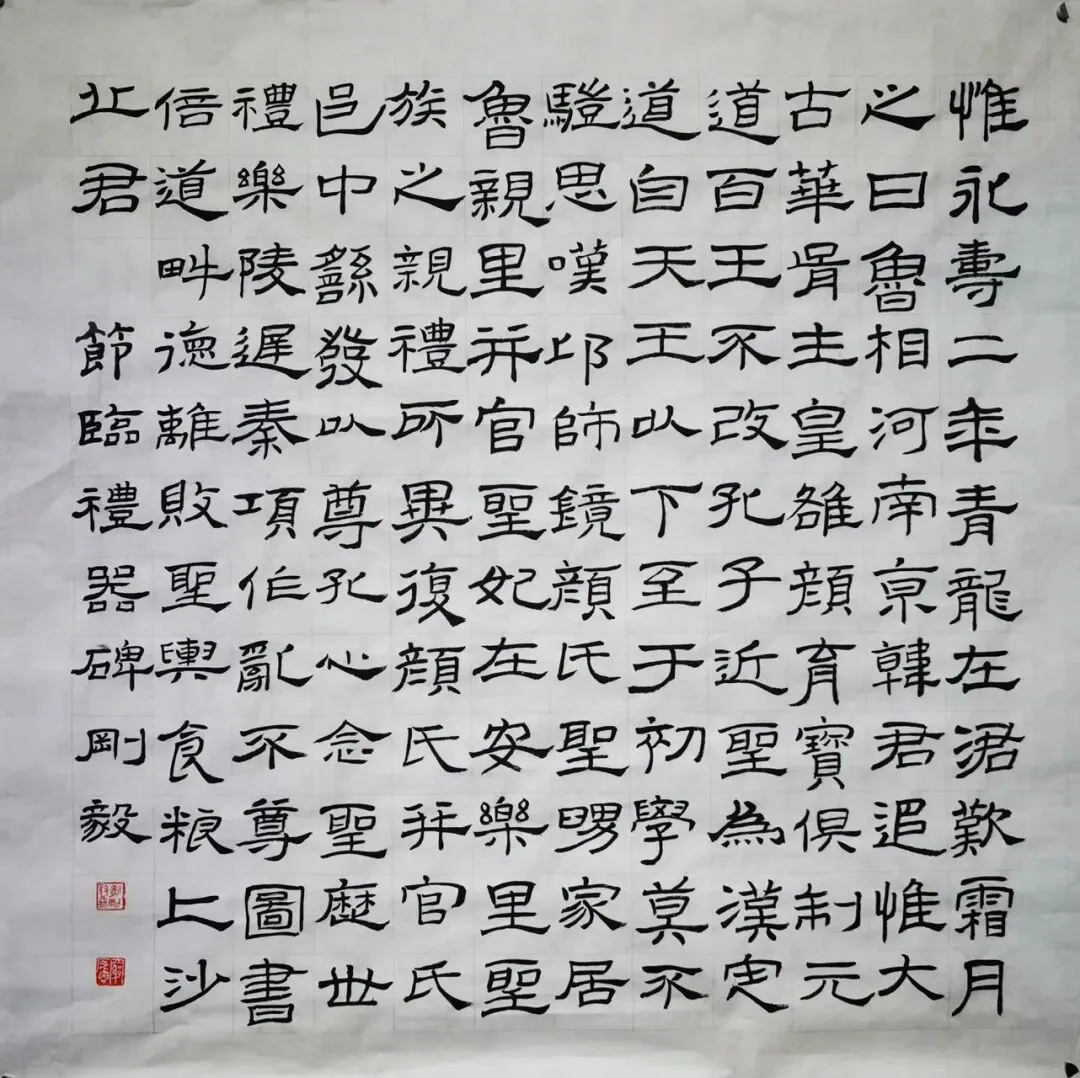 惟永壽二年青龍在涒歎霜月
之日魯相河南京韓君追惟大
古華胥主皇雄顏育寶俱制元
道百王不改孔子近聖為漢定
道自天王以下至于初學莫不
驥思嘆卬師鏡顏氏聖舅家居
魯親里并官聖妃在安樂里聖
族之親禮所異復顏氏并官氏
邑中繇發以尊孔心念聖歷世
禮樂陵遲秦項作亂不尊圖書
倍道畔德離敗聖輿食粮亡沙
丘君 節臨禮器碑剛毅